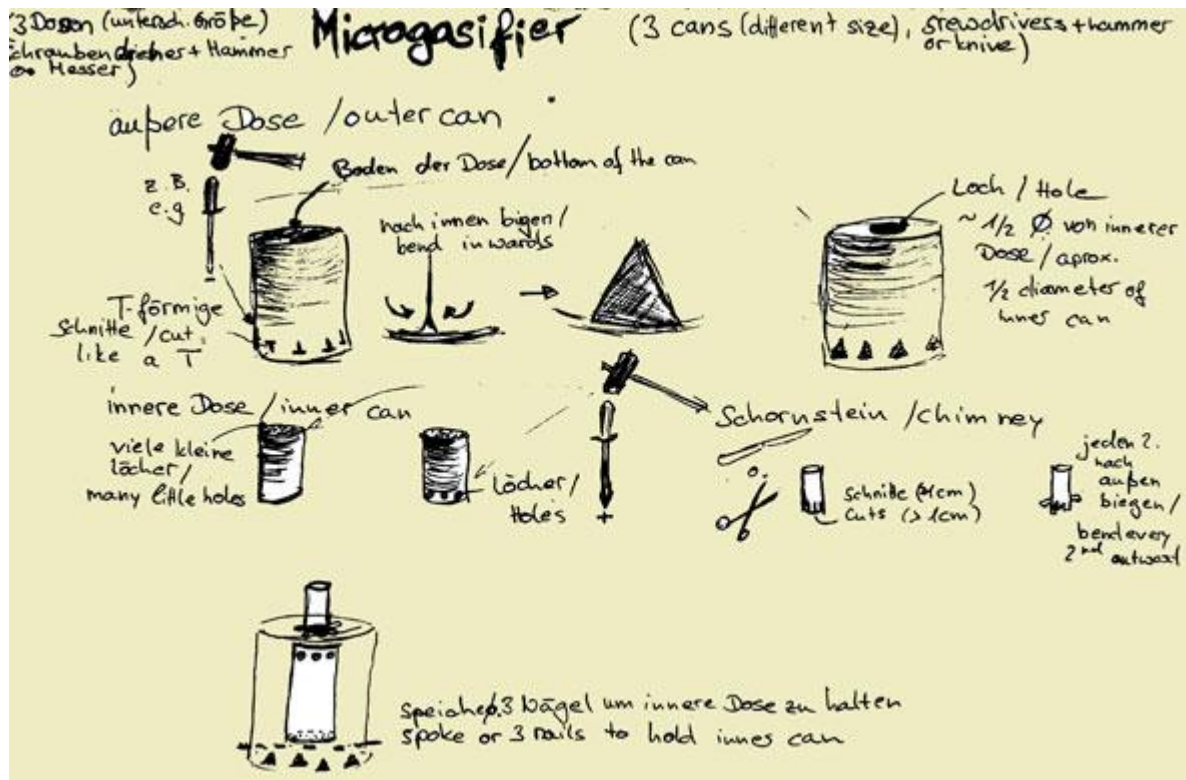 3 Dosen (untersch. Größe)
Schraubendreher + Hammer
oo Messer)
Microgasifier
(3 cans (different size), srewdrivers + hammer
or knive)
äußere Dose / outer can
z.B.
e.g
Boden der Dose / bottom of the can
nach innen bigen /
bend inwards
T-förmige
Schnitte / cut
like a T
Loch / Hole
~ 1/2 Ø von innerer
Dose / aprox.
1/2 diameter of
inner can
innere Dose / inner can
viele kleine
löcher /
many little holes
Löcher /
Holes
Schornstein / chimney
Schnitte (>1cm)
Cuts (>1cm)
jeden 2.
nach
außen
biegen /
bend every
2nd outward
3 Nägel um innere Dose zu halten
spoke or 3 nails to hold inner can